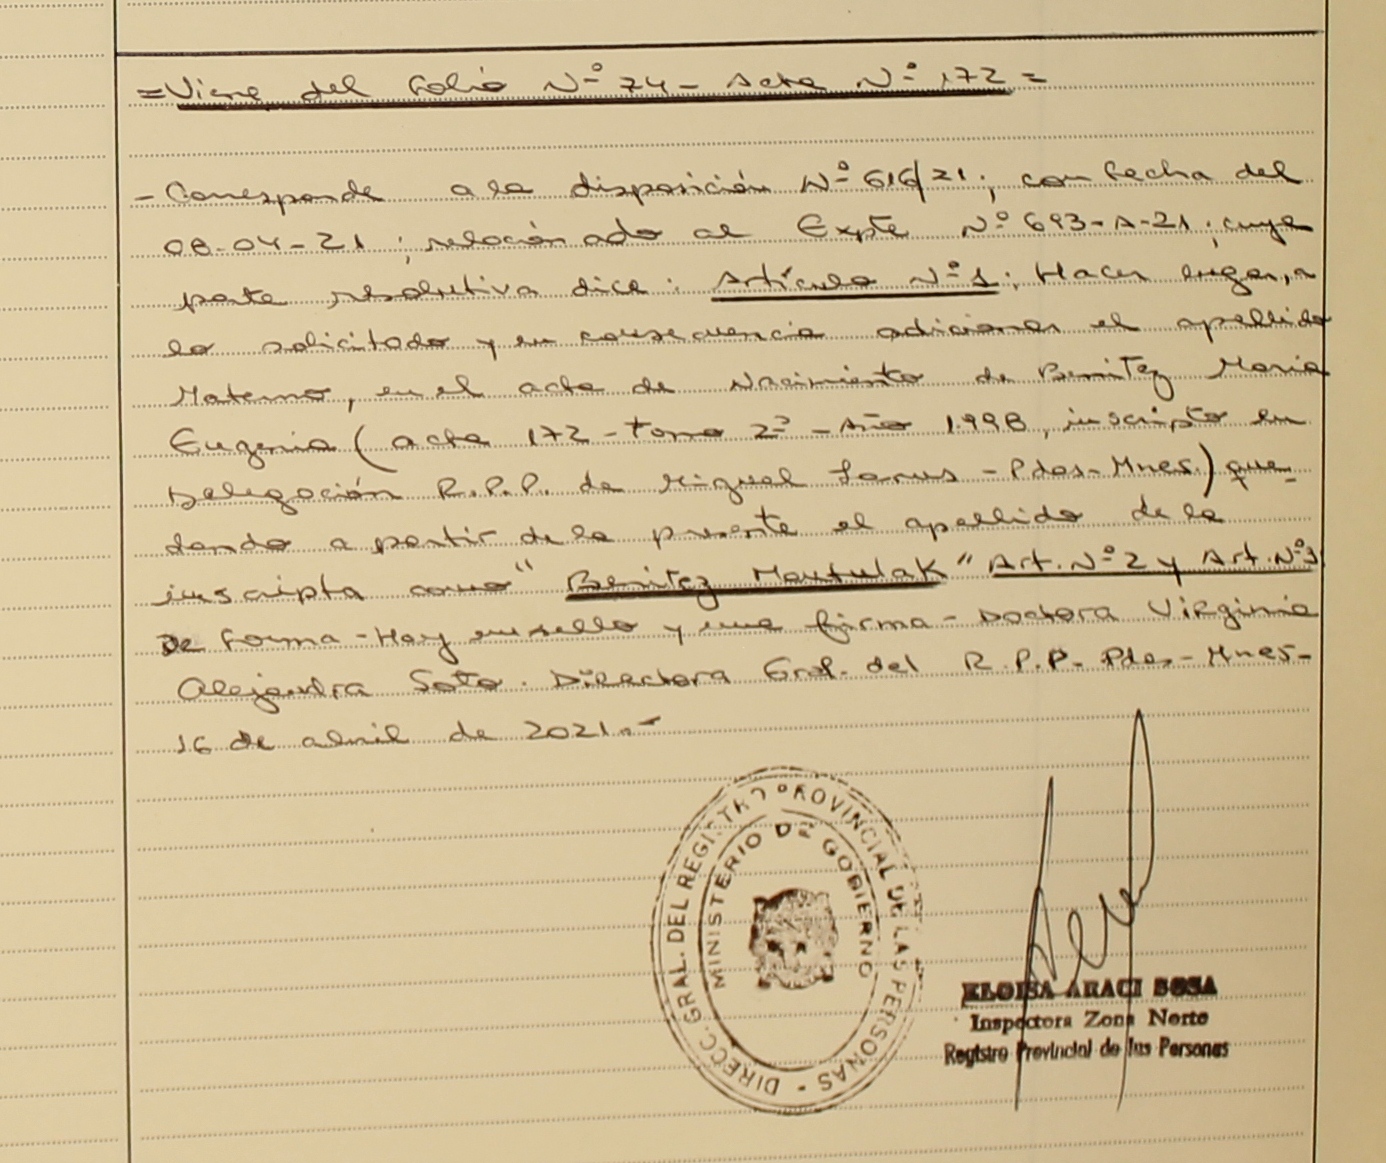 =Viene del Folio Nº 74 - Acta Nº 172=
- Corresponde a la disposición Nº 616/21; con fecha del
08-04-21; relacionado al Expte Nº 693-A-21; cuya
parte resolutiva dice: Artículo Nº 1: Hacer lugar, a
lo solicitado y en consecuencia adicionar el apellido
Materno, en el acta de Nacimiento de Benitez Maria
Eugenia (acta 172 - tomo 2º - Año 1.998, inscripto en
Delegación R.P.P. de Miguel Lanus - Pdas - Mnes.) que-
dando a partir de la presente el apellido de la
inscripta como "Benitez Mautulak" Art. Nº 2 y Art. Nº 3
De forma - Hay un sello y una firma - Doctora Virginia
Alejandra Soto. Directora Gral. del R.P.P. Pdas - Mnes -
16 de abril de 2021.-
DIRECC. GRAL. DEL REGISTRO PROVINCIAL DE LAS PERSONAS -
MINISTERIO DE GOBIERNO
ELOISA ARACI SOSA
Inspectora Zona Norte
Registro Provincial de las Personas